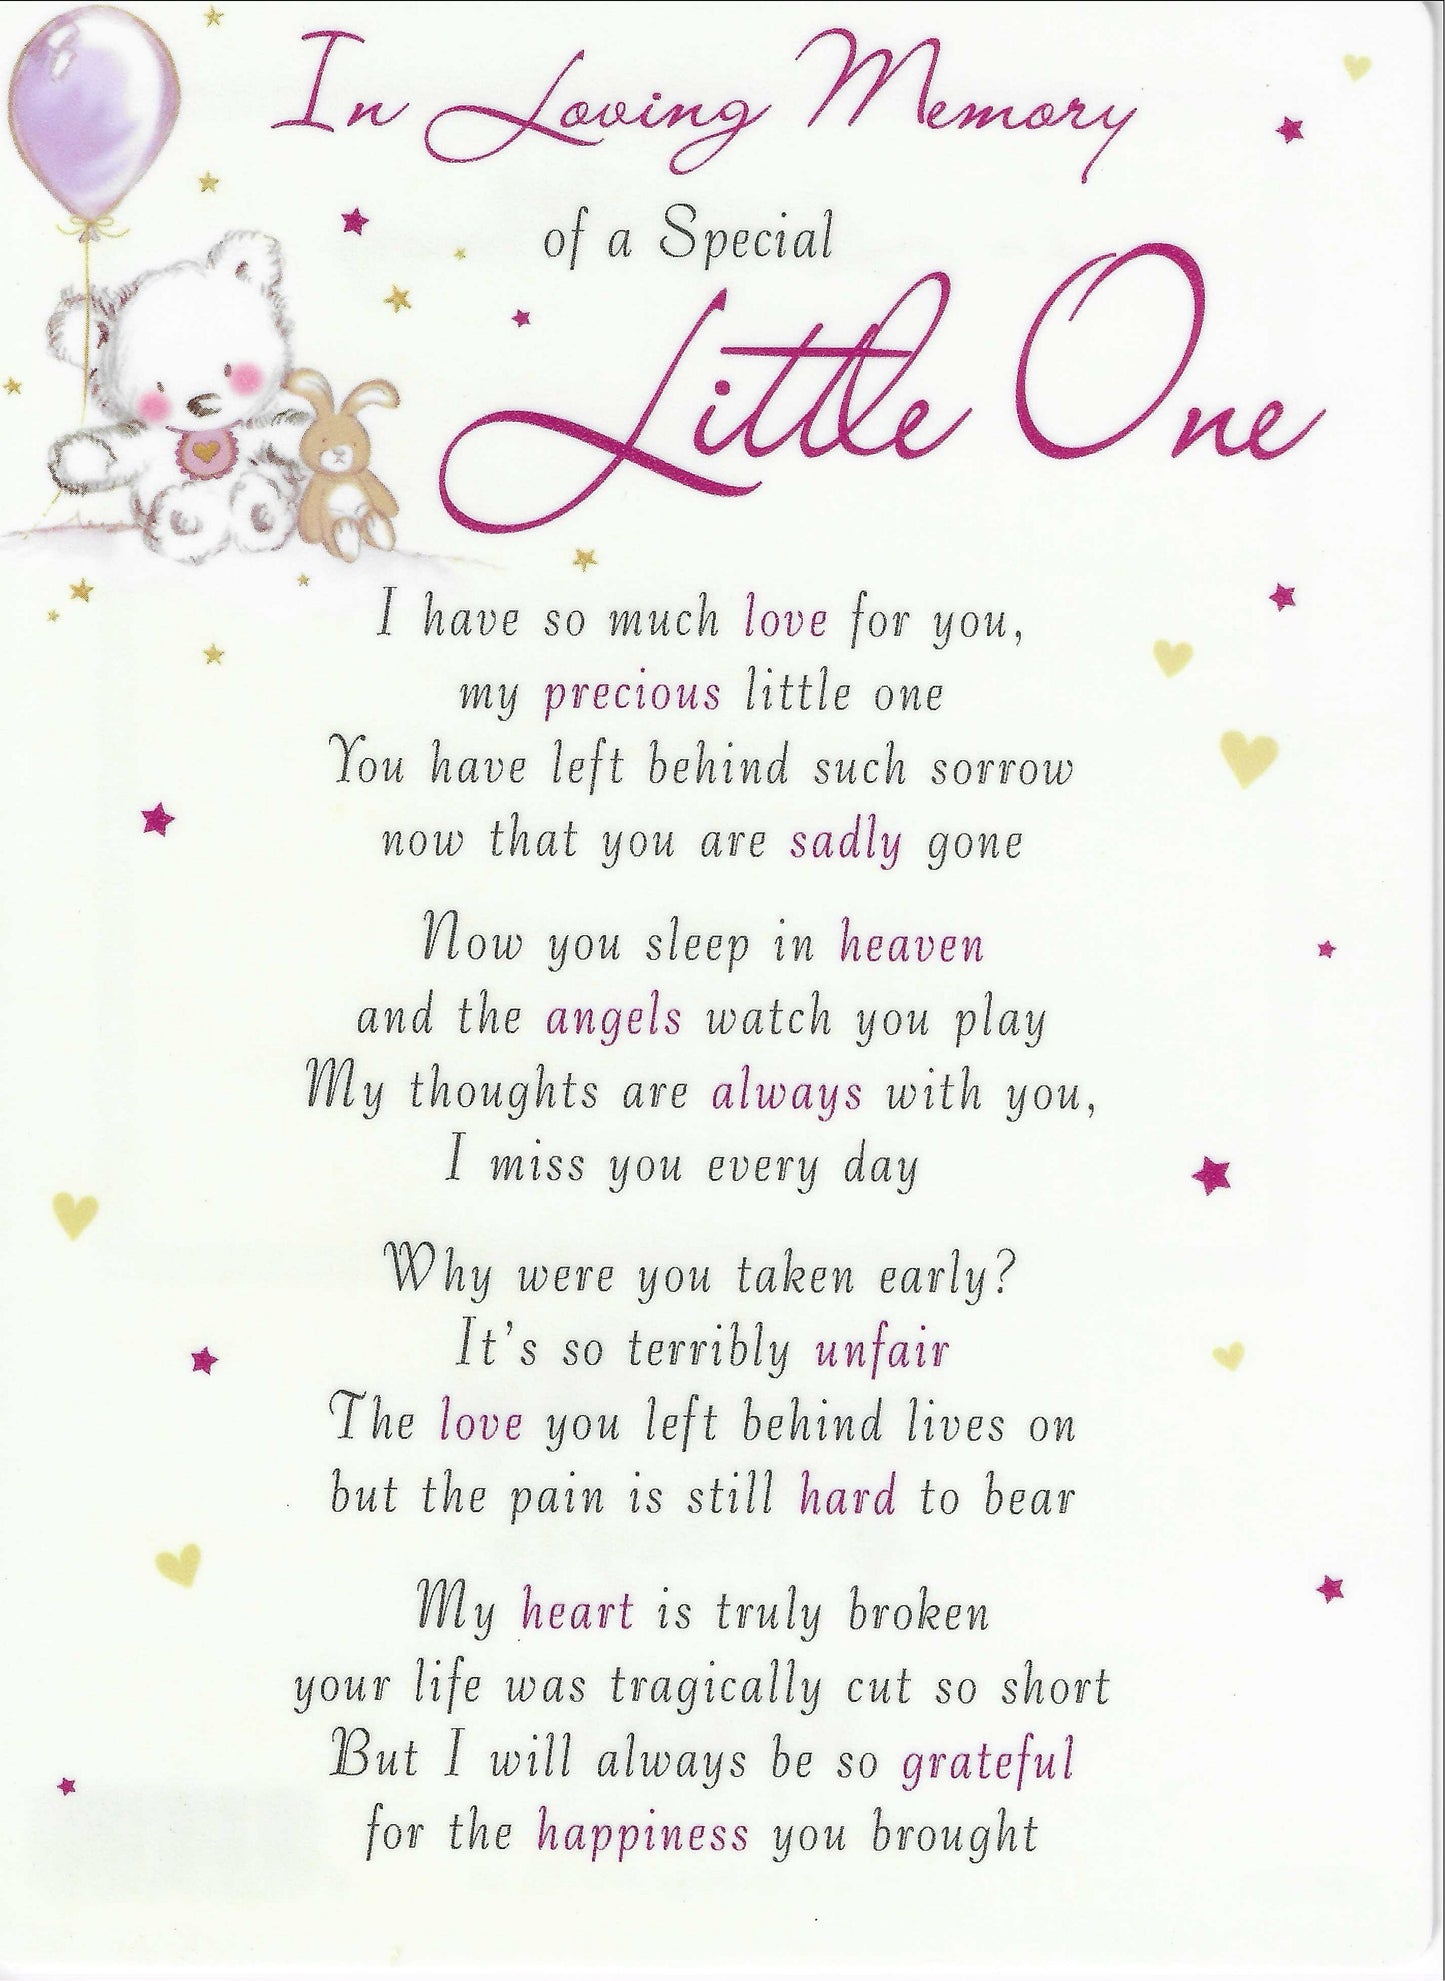 In Loving Memory
of a Special
Little One
I have so much love for you,
my precious little one
You have left behind such sorrow
now that you are sadly gone
Now you sleep in heaven
and the angels watch you play
My thoughts are always with you,
I miss you every day
Why were you taken early?
It's so terribly unfair
The love you left behind lives on
but the pain is still hard to bear
My heart is truly broken
your life was tragically cut so short
But I will always be so grateful
for the happiness you brought